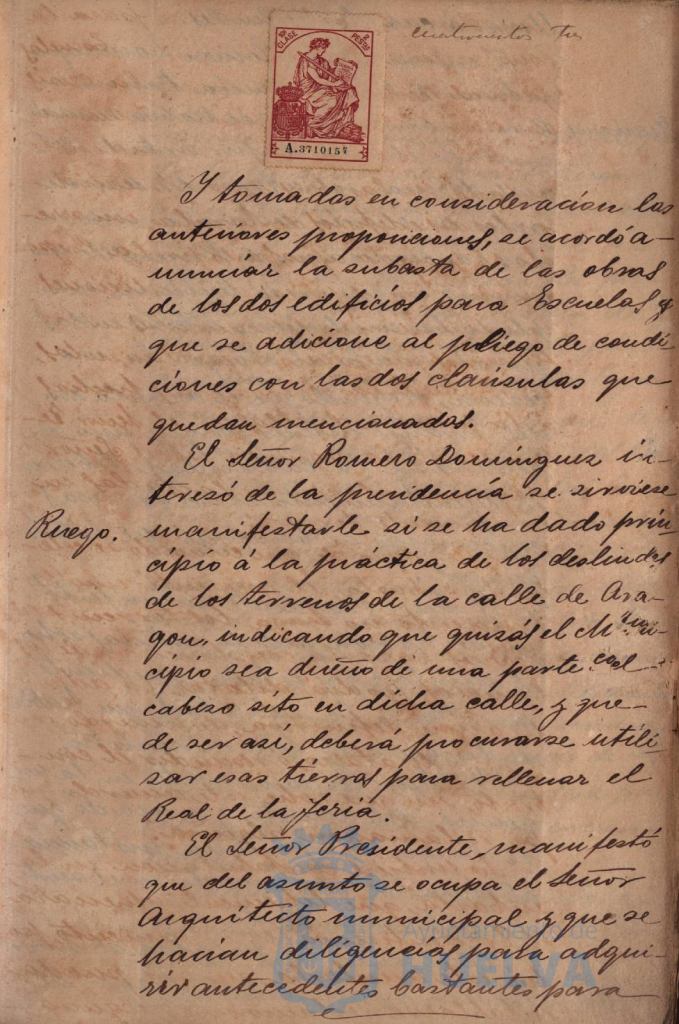 cuatrocientos tres
10ª CLASE 2 PESETAS
A.3710157
Y tomadas en consideración las
anteriores proposiciones, se acordó a-
nunciar la subasta de las obras
de los dos edificios para Escuelas y
que se adicione al pliego de condi-
ciones con las dos claúsulas que
quedan mencionadas.
El Señor Romero Domínguez in-
teresó de la presidencia se sirviese
Ruego.
manifestarle si se ha dado prin-
cipio á la práctica de los deslindes
de los terrenos de la calle de Ara-
gon, indicando que quizás el Muni-
cipio sea dueño de una parte del
cabezo sito en dicha calle, y que
de ser así, deberá procurarse utili-
zar esas tierras para rellenar el
Real de la feria.
El Señor Presidente, manifestó
que del asunto se ocupa el Señor
Arquitecto municipal y que se
hacían diligencias para adqui-
rir antecedentes bastantes para
Ayuntamiento de
HUELVA